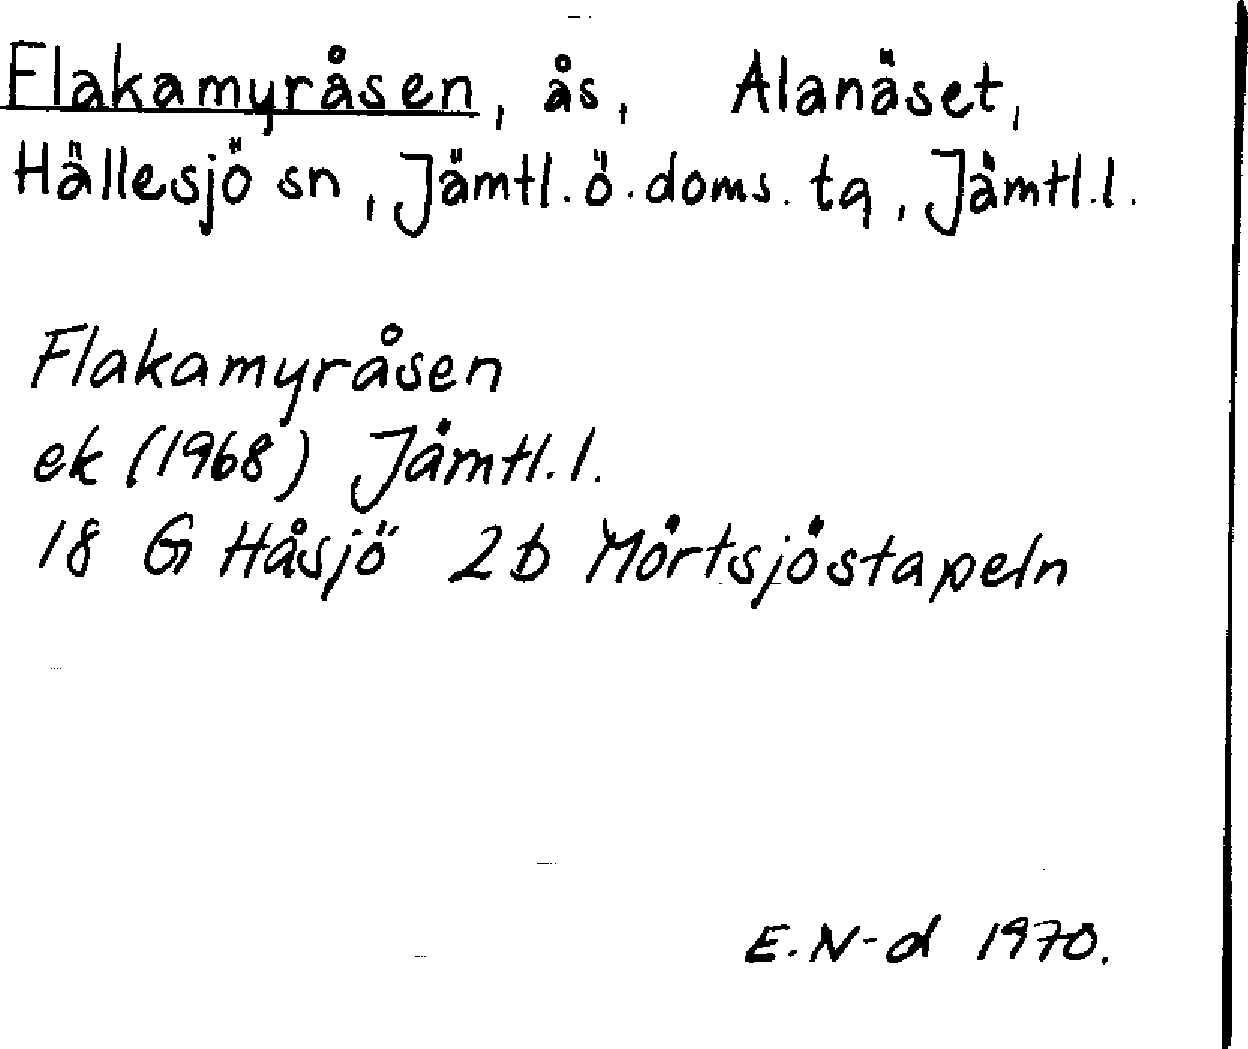 Flakamyråsen, ås, Alanäset,
Hällesjö sn, Jämtl. ö. doms. tg, Jämtl. l.
Flakamyråsen
ek (1968) Jämtl. l.
18 G Håsjö 2 b Mörtsjöstapeln
E. N-d 1970.